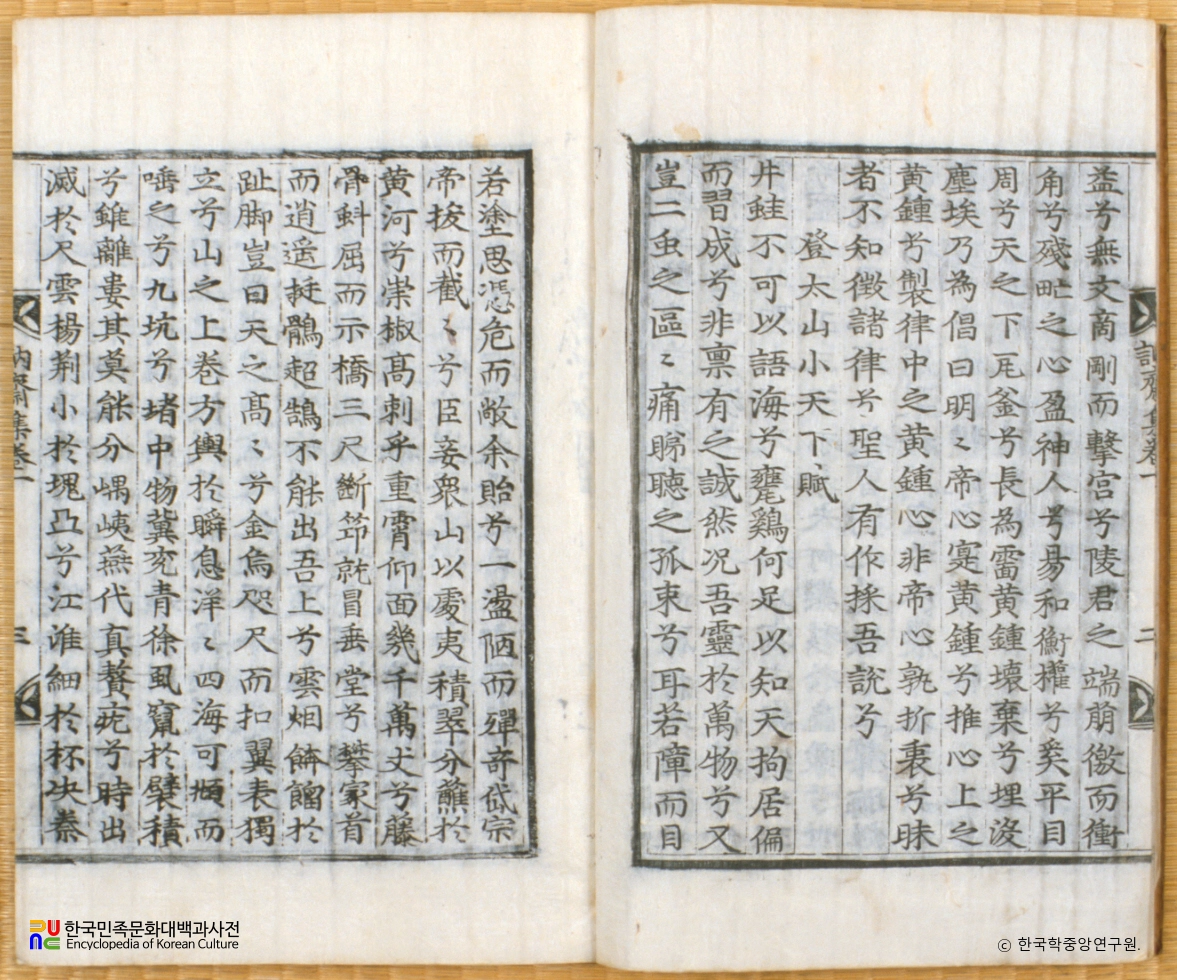 益兮無文商剛而擊宮兮陵君之端崩徵而衝
角兮殘甿之心盈神人兮昜和衡權兮奚平目
周兮天之下瓦釜兮長為雷黃鍾壞棄兮埋沒
塵埃乃為倡曰明〻帝心寔黃鍾兮推心上之
黃鍾兮製律中之黃鍾心非帝心孰折衷兮昧
者不知徵諸律兮聖人有作採吾說兮
登太山小天下賦
井蛙不可以語海兮甕鷄何足以知天拘居偏
而習成兮非禀有之誠然况吾靈於萬物兮又
豈二虫之區〻痛睇聽之孤束兮耳若㢓而目
集卷一
二
若塗思憑危而敞余眙兮一盪陋而殫奇岱宗
帝拔而截〻兮臣妾衆山以處夷積翠分鑣於
黃河兮崇椒髙刺乎重霄仰面幾千萬丈兮藤
骨蚪屈而示橋三尺斷笻就冒垂堂兮攀冢首
而逍遥挺鶻超鵠不能出吾上兮雲烟餴餾於
趾脚豈曰天之髙〻兮金烏咫尺而扣翼表獨
立兮山之上卷方輿於瞬息洋〻四海可頫而
嚥之兮九坑兮堵中物冀兖青徐風竄於襞積
兮錐離婁其奠能分嵎峓燕代真贅疣兮時出
滅於尺雲楊荆小於塊凸兮江淮細於杯坱秦
訥齋集卷一
三
한국민족문화대백과사전
Encyclopedia of Korean Culture
© 한국학중앙연구원.